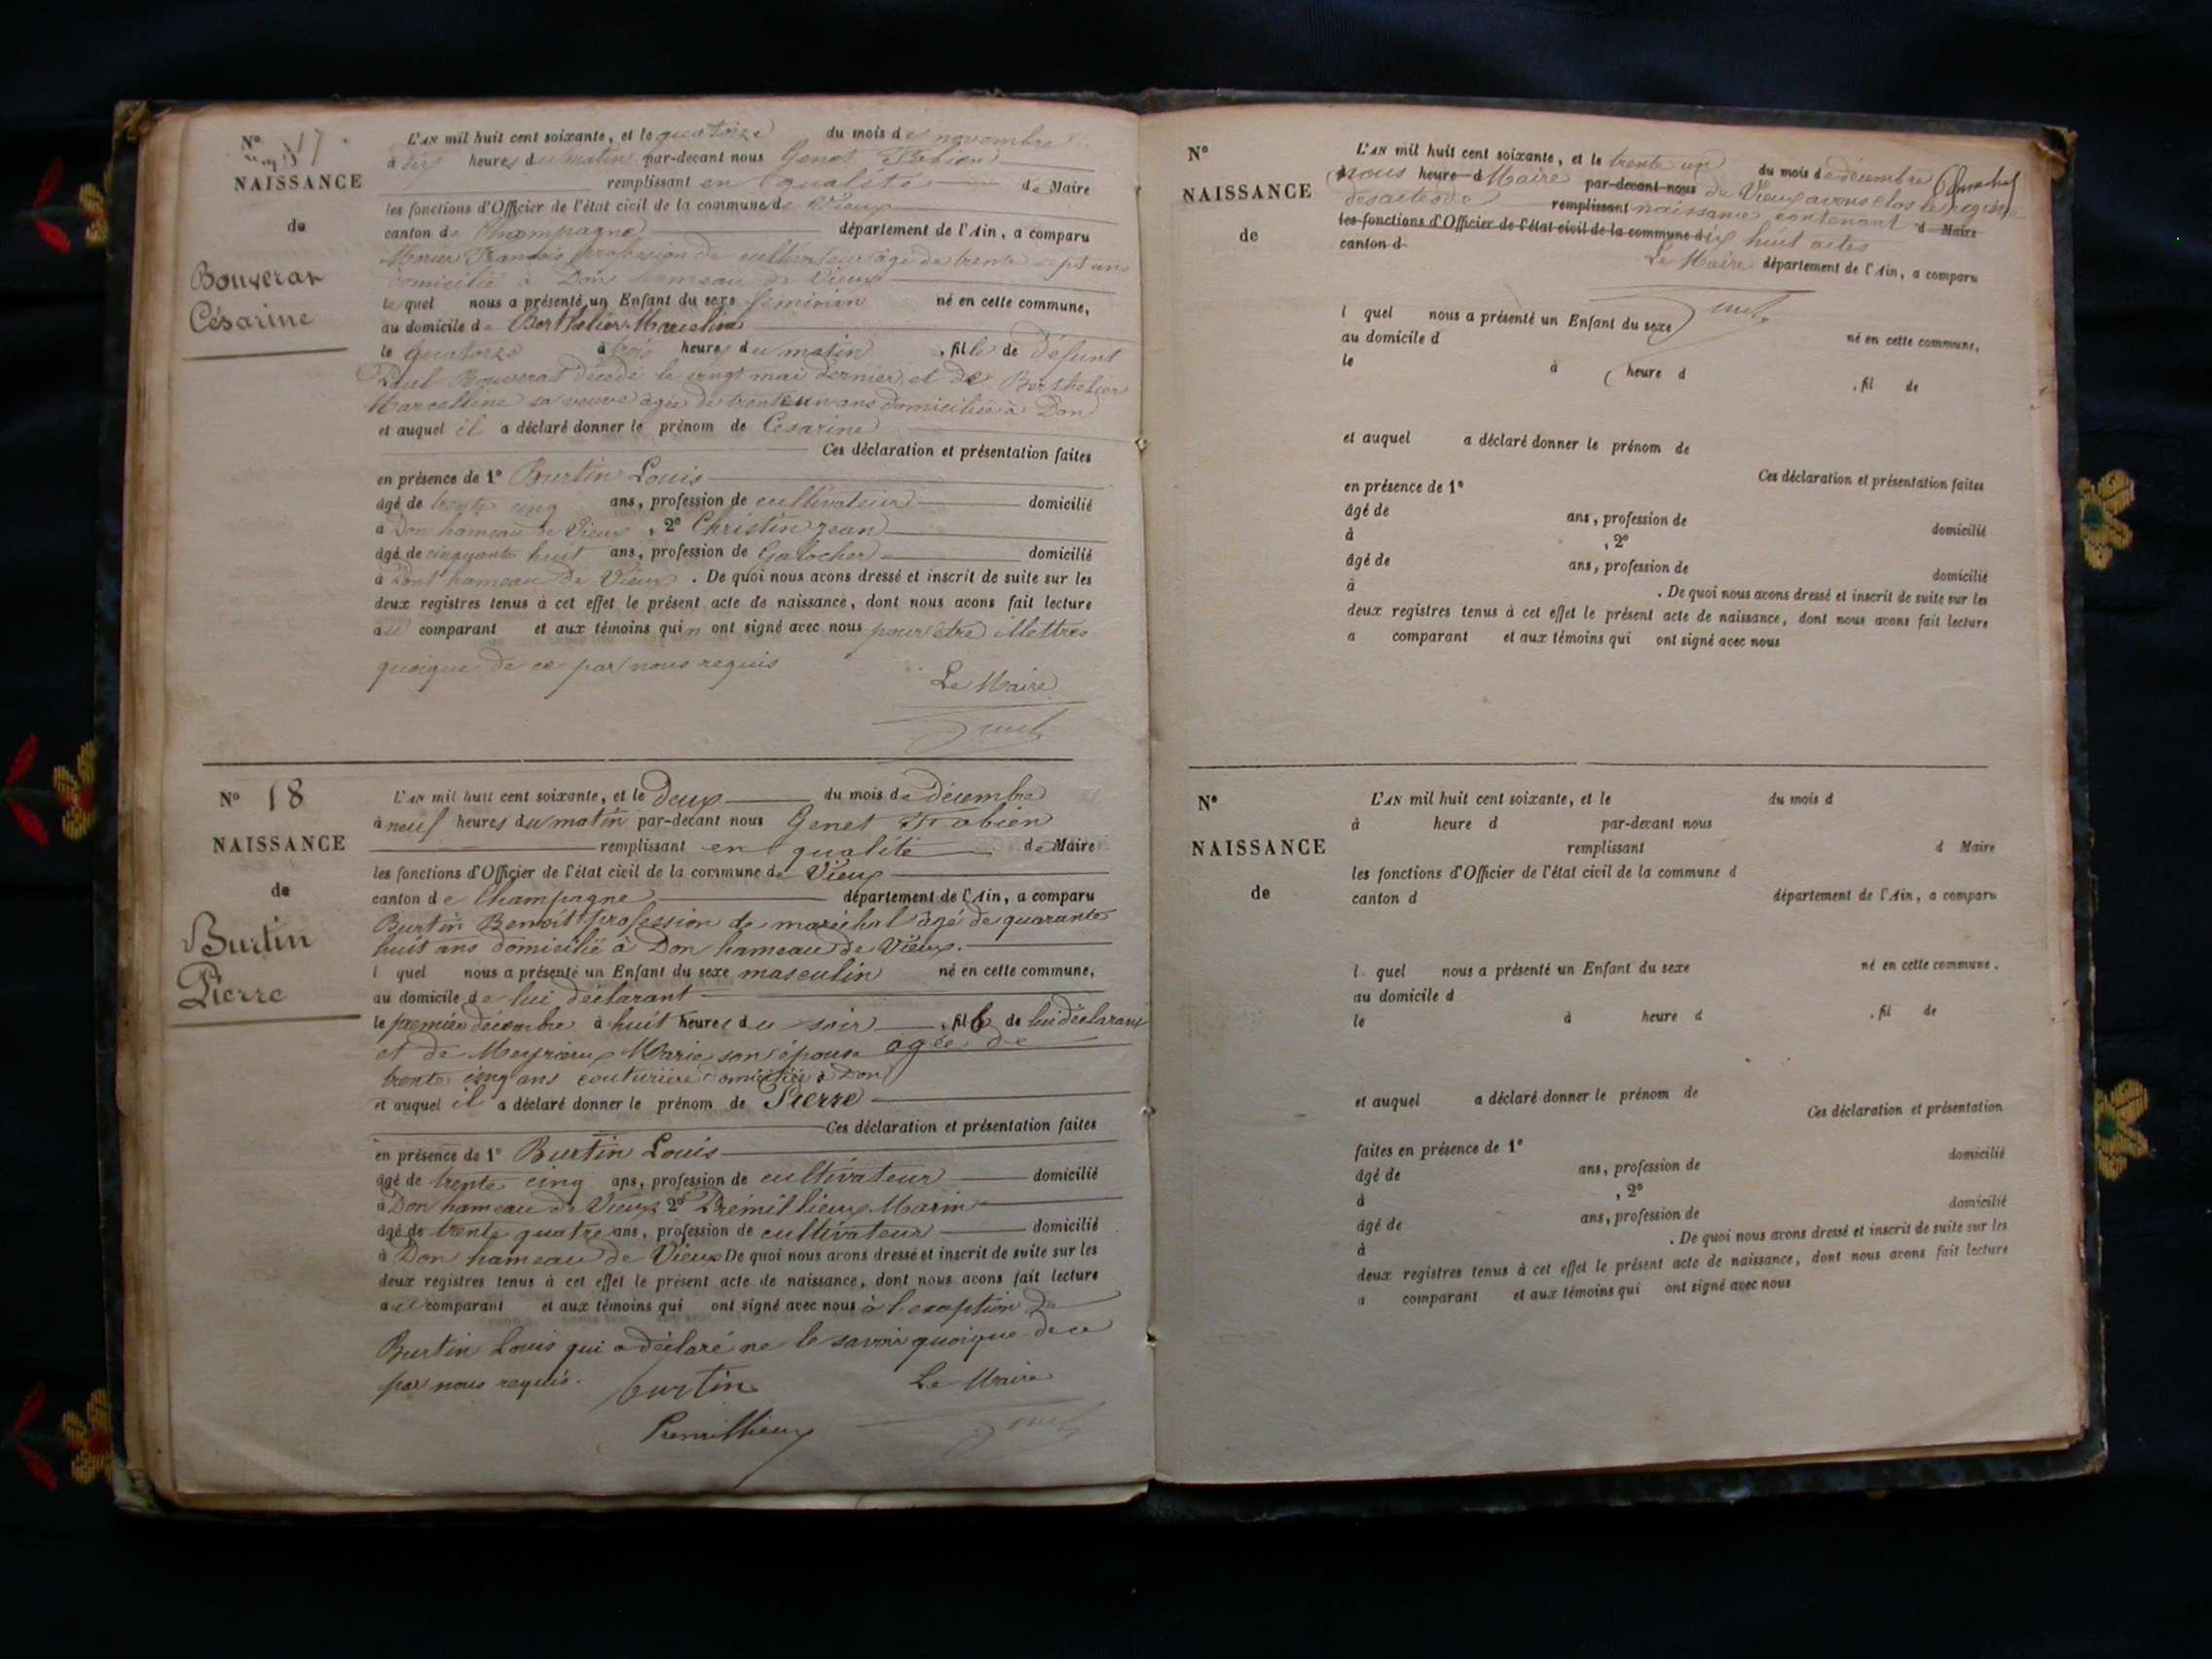 N° 17
NAISSANCE
de
Bouverat
Césarine
L'AN mil huit cent soixante, et le quatorze du mois de novembre
à dix heures du matin par-devant nous Genet Fabien
remplissant en qualité de Maire
les fonctions d'Officier de l'état civil de la commune de Vieux
canton de Champagne département de l'Ain, a comparu
François profession de cultivateur âgé de trente sept ans
domicilié à Don hameau de Vieux
le quel nous a présenté un Enfant du sexe féminin né en cette commune,
au domicile de Berthelier Marceline
le quatorze à trois heures du matin , fille de défunt
Paul Bouverat décédé le vingt mai dernier, et de Berthelier
Marcelline sa veuve âgée de trente un ans domiciliée à Don
et auquel il a déclaré donner le prénom de Césarine
Ces déclaration et présentation faites
en présence de 1° Burtin Louis
âgé de trente cinq ans, profession de cultivateur domicilié
à Don hameau de Vieux , 2° Christin Jean
âgé de cinquante huit ans, profession de Galocher domicilié
à Dont hameau de Vieux . De quoi nous avons dressé et inscrit de suite sur les
deux registres tenus à cet effet le présent acte de naissance, dont nous avons fait lecture
au comparant et aux témoins qui n ont signé avec nous pour être illettrés
quoique de ce par nous requis
Le Maire
N° 18
NAISSANCE
de
Burtin
Pierre
L'AN mil huit cent soixante, et le deux du mois de décembre
à neuf heures du matin par-devant nous Genet Fabien
remplissant en qualité de Maire
les fonctions d'Officier de l'état civil de la commune de Vieux
canton de Champagne département de l'Ain, a comparu
Burtin Benoit profession de maréchal âgé de quarante
huit ans domicilié à Don hameau de Vieux.
l quel nous a présenté un Enfant du sexe masculin né en cette commune,
au domicile de lui déclarant
le premier décembre à huit heures du soir , fils de lui déclarant
et de Meyrieux Marie son épouse agée de
trente cinq ans couturière domiciliée à Don
et auquel il a déclaré donner le prénom de Pierre
Ces déclaration et présentation faites
en présence de 1° Burtin Louis
âgé de trente cinq ans, profession de cultivateur domicilié
à Don hameau de Vieux 2° Prémillieux Marin
âgé de trente quatre ans, profession de cultivateur domicilié
à Don hameau de Vieux De quoi nous avons dressé et inscrit de suite sur les
deux registres tenus à cet effet le présent acte de naissance, dont nous avons fait lecture
au comparant et aux témoins qui ont signé avec nous à l'exception de
Burtin Louis qui a déclaré ne le savoir quoique de ce
par nous requis.
burtin Le Maire
Premillieux
N°
NAISSANCE
de
L'AN mil huit cent soixante, et le trente un du mois de décembre
nous heure d Maire par-devant nous de Vieux avons clos le registre
des actes de remplissant naissance contenant d Maire
les fonctions d'Officier de l'état civil de la commune d dix huit actes
canton d
Le Maire département de l'Ain, a comparu
l quel nous a présenté un Enfant du sexe
né en cette commune,
au domicile d
le à heure d , fil de
et auquel a déclaré donner le prénom de
Ces déclaration et présentation faites
en présence de 1°
âgé de ans, profession de domicilié
à , 2°
âgé de ans, profession de domicilié
à . De quoi nous avons dressé et inscrit de suite sur les
deux registres tenus à cet effet le présent acte de naissance, dont nous avons fait lecture
a comparant et aux témoins qui ont signé avec nous
N°
NAISSANCE
de
L'AN mil huit cent soixante, et le du mois d
à heure d par-devant nous
remplissant d Maire
les fonctions d'Officier de l'état civil de la commune d
canton d département de l'Ain, a comparu
l quel nous a présenté un Enfant du sexe né en cette commune,
au domicile d
le à heure d , fil de
et auquel a déclaré donner le prénom de
Ces déclaration et présentation
faites en présence de 1°
âgé de ans, profession de domicilié
à , 2°
âgé de ans, profession de domicilié
à . De quoi nous avons dressé et inscrit de suite sur les
deux registres tenus à cet effet le présent acte de naissance, dont nous avons fait lecture
a comparant et aux témoins qui ont signé avec nous